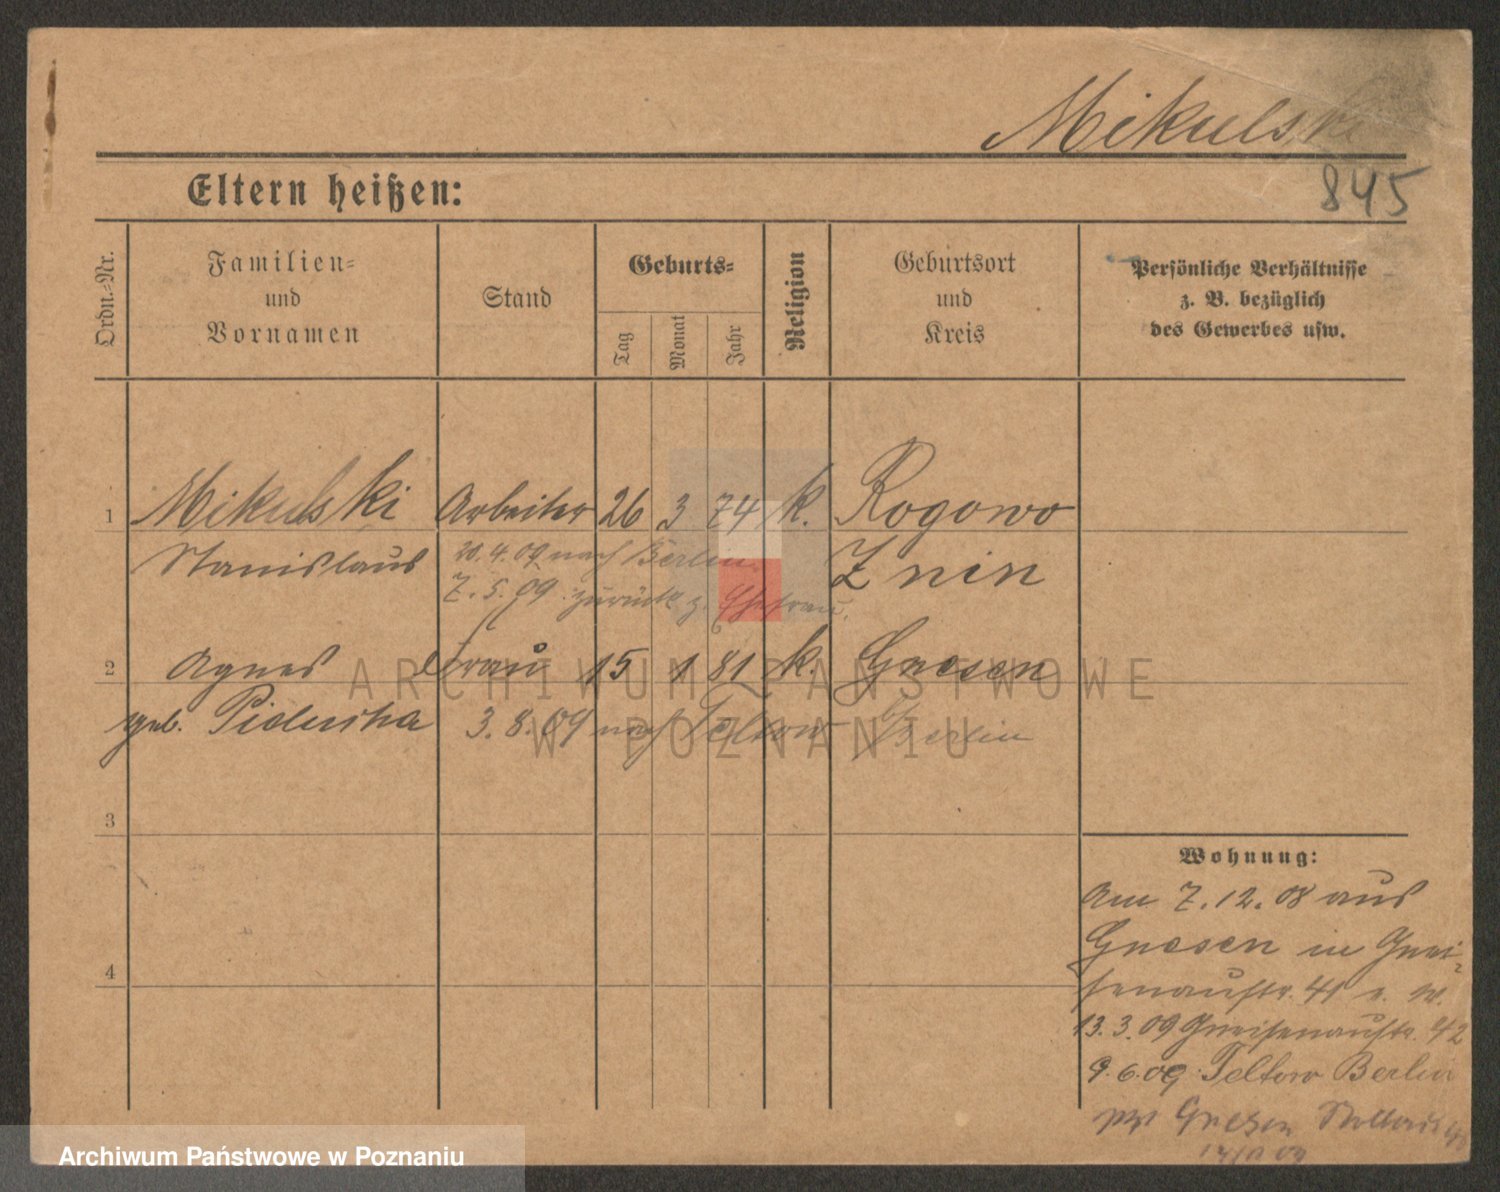 Mikulski
845
Eltern heißen:
Ordn.-Nr.
Familien-
und
Vornamen
Stand
Geburts-
Tag
Monat
Jahr
Religion
Geburtsort
und
Kreis
Persönliche Verhältnisse
z. B. bezüglich
des Gewerbes usw.
1 Mikulski Arbeiter 26 3 74 k. Rogowo
Stanislaus 20.4.09 nach Berlin Znin
7.5.09 zurück z. Ehefrau.
2 Agnes Frau 15 1 81 k. Gnesen
geb. 3.8.09 nach Teltow Berlin
3
4
Wohnung:
Am 7.12.08 aus
Gnesen in Gnei-
senaustr. 41 z. w.
13.3.09 Gneisenaustr. 42
9.6.09 Teltow Berlin
Gnesen
ARCHIWUM PAŃSTWOWE
W POZNANIU
Archiwum Państwowe w Poznaniu